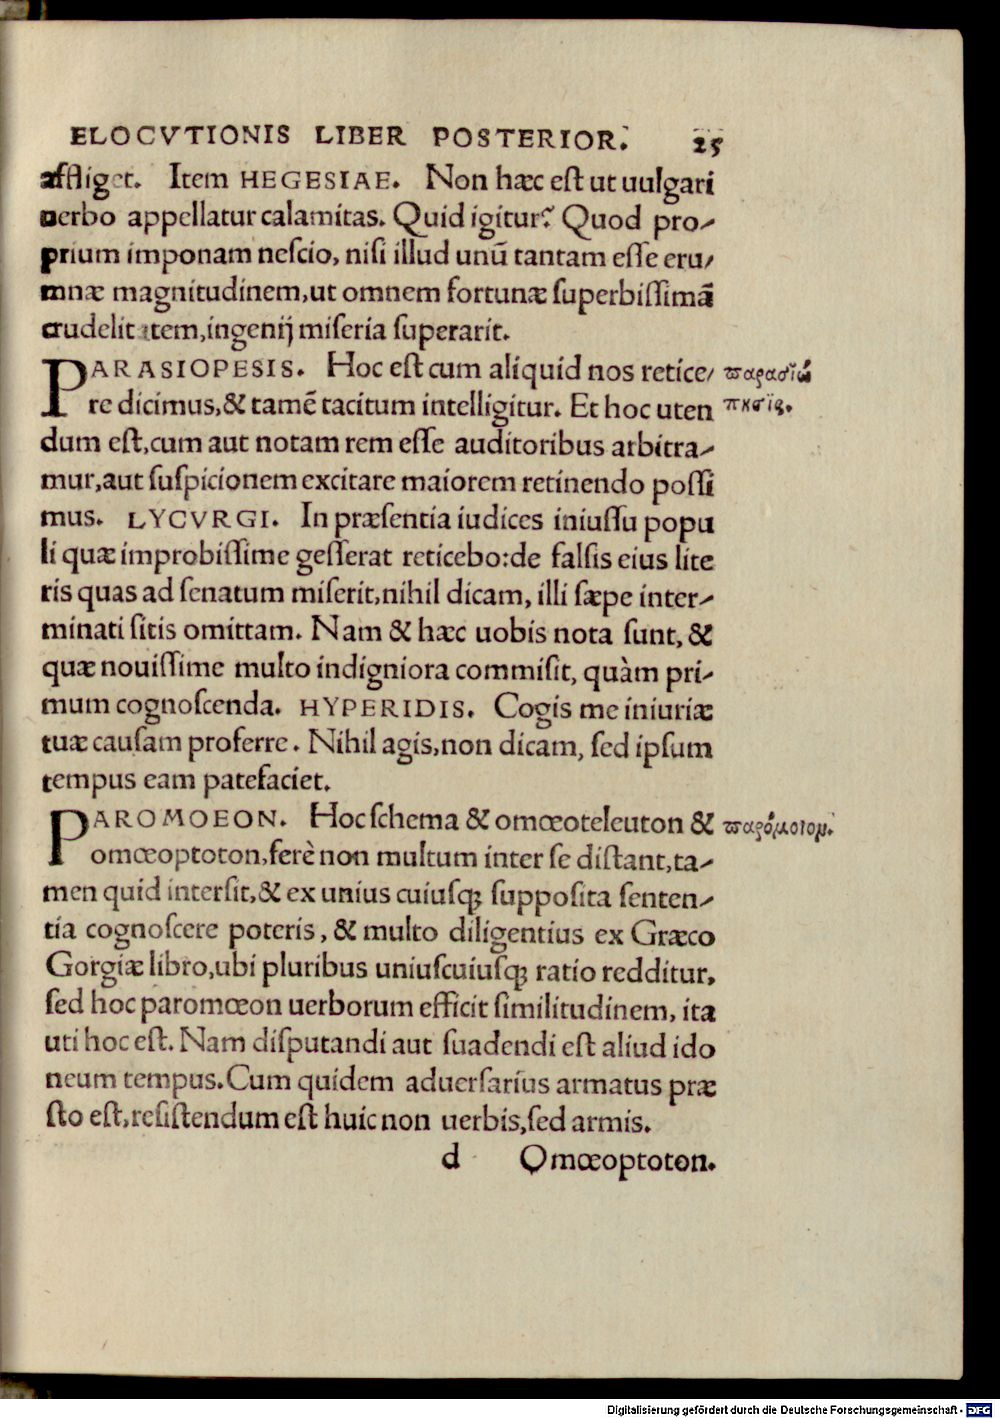 ELOCVTIONIS LIBER POSTERIOR. 25
affliget. Item HEGESIAE. Non hæc eſt ut uulgari
uerbo appellatur calamitas. Quid igitur? Quod pro-
prium imponam neſcio, niſi illud unū tantam eſſe eru-
mnæ magnitudinem, ut omnem fortunæ ſuperbiſſimā
crudelitatem, ingenij miſeria ſuperarit.
PARASIOPESIS. Hoc eſt cum aliquid nos retice- παρασιώ
re dicimus, & tamē tacitum intelligitur. Et hoc uten πησις.
dum eſt, cum aut notam rem eſſe auditoribus arbitra-
mur, aut ſuſpicionem excitare maiorem retinendo poſſi
mus. LYCVRGI. In præſentia iudices iniuſſu popu
li quæ improbiſſime geſſerat reticebo: de falſis eius lite
ris quas ad ſenatum miſerit, nihil dicam, illi ſæpe inter-
minati ſitis omittam. Nam & hæc uobis nota ſunt, &
quæ nouiſſime multo indigniora commiſit, quàm pri-
mum cognoſcenda. HYPERIDIS. Cogis me iniuriæ
tuæ cauſam proferre. Nihil agis, non dicam, ſed ipſum
tempus eam patefaciet.
PAROMOEON. Hoc ſchema & omœoteleuton & παρόμοιον.
omœoptoton, ferè non multum inter ſe diſtant, ta-
men quid interſit, & ex unius cuiuſqꝫ ſuppoſita ſenten-
tia cognoſcere poteris, & multo diligentius ex Græco
Gorgiæ libro, ubi pluribus uniuſcuiuſqꝫ ratio redditur,
ſed hoc paromœon uerborum efficit ſimilitudinem, ita
uti hoc eſt. Nam diſputandi aut ſuadendi eſt aliud ido
neum tempus. Cum quidem aduerſarius armatus præ
ſto eſt, reſiſtendum eſt huic non uerbis, ſed armis.
d Omœoptoton.
Digitalisierung gefördert durch die Deutsche Forschungsgemeinschaft - DFG